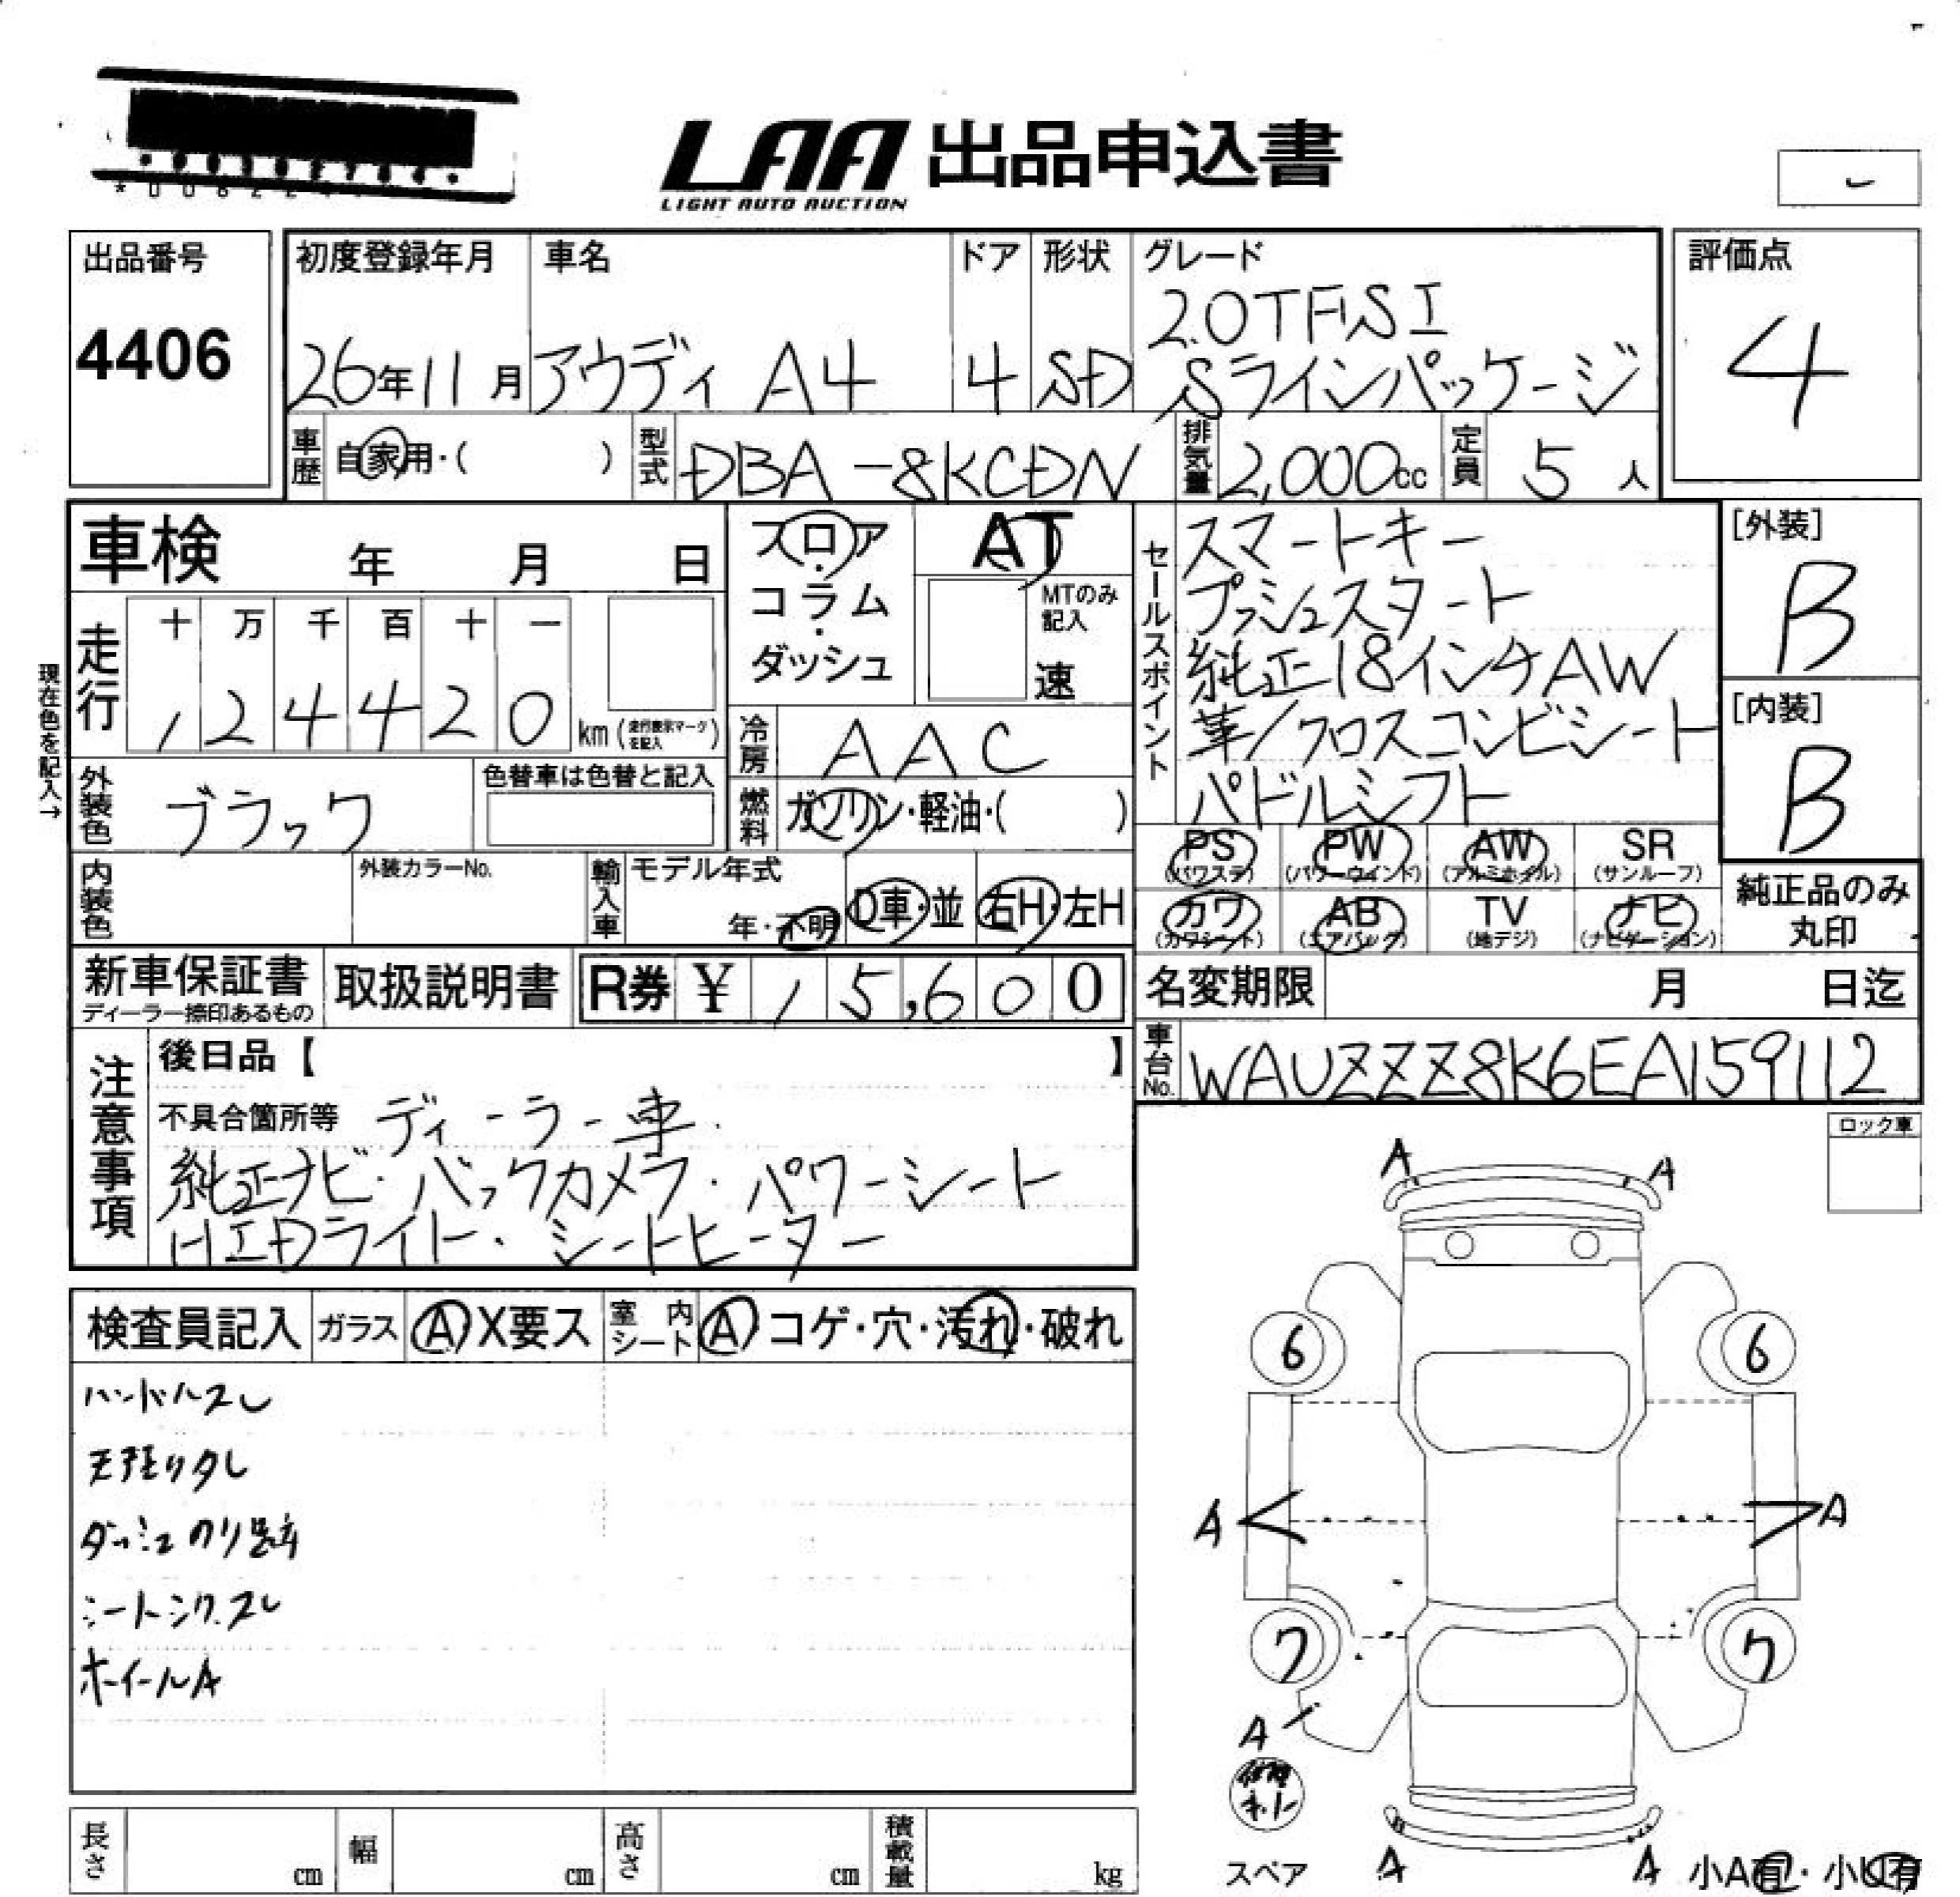 LAA 出品申込書
LIGHT AUTO AUCTION
出品番号
4406
初度登録年月
26年11月
車名
アウディ A4
ドア
4
形状
SD
グレード
2.0TFSI
Sラインパッケージ
評価点
4
車歴 自家用・( )
型式 DBA-8KCDN
排気量 2,000cc
定員 5人
車検 年 月 日
フロア・コラム・ダッシュ
AT
MTのみ記入
速
セールスポイント
スマートキー
プッシュスタート
純正18インチAW
革/クロスコンビシート
パドルシフト
[外装]
B
[内装]
B
現在色を記入→
走行
十 万 千 百 十 一
, 2 4 4 2 0 km (走行表示マークを記入)
冷房 AAC
外装色 ブラック
色替車は色替と記入
燃料 ガソリン・軽油・( )
PS (パワステ) PW (パワーウインド) AW (アルミホイル) SR (サンルーフ)
カワ (カワシート) AB (エアバッグ) TV (地デジ) ナビ (ナビゲーション)
純正品のみ丸印
内装色
外装カラーNo.
輸入車
モデル年式
年・不明
D車・並
右H・左H
新車保証書
ディーラー捺印あるもの
取扱説明書
R券 ¥ 15,600
名変期限 月 日迄
車台No. WAUZZZ8K6EA159112
注意事項
後日品【 】
不具合箇所等 ディーラー車.
純正ナビ・バックカメラ・パワーシート
HIDライト・シートヒーター
ロック車
検査員記入
ガラス A X要ス
室内シート A コゲ・穴・汚れ・破れ
ハンドルスレ
天張りタレ
ダッシュのり跡
シートシワ.スレ
ホイールA
A A
6 6
A A
7 7
A
スペア
A A
小A有・小U有
長さ cm
幅 cm
高さ cm
積載量 kg